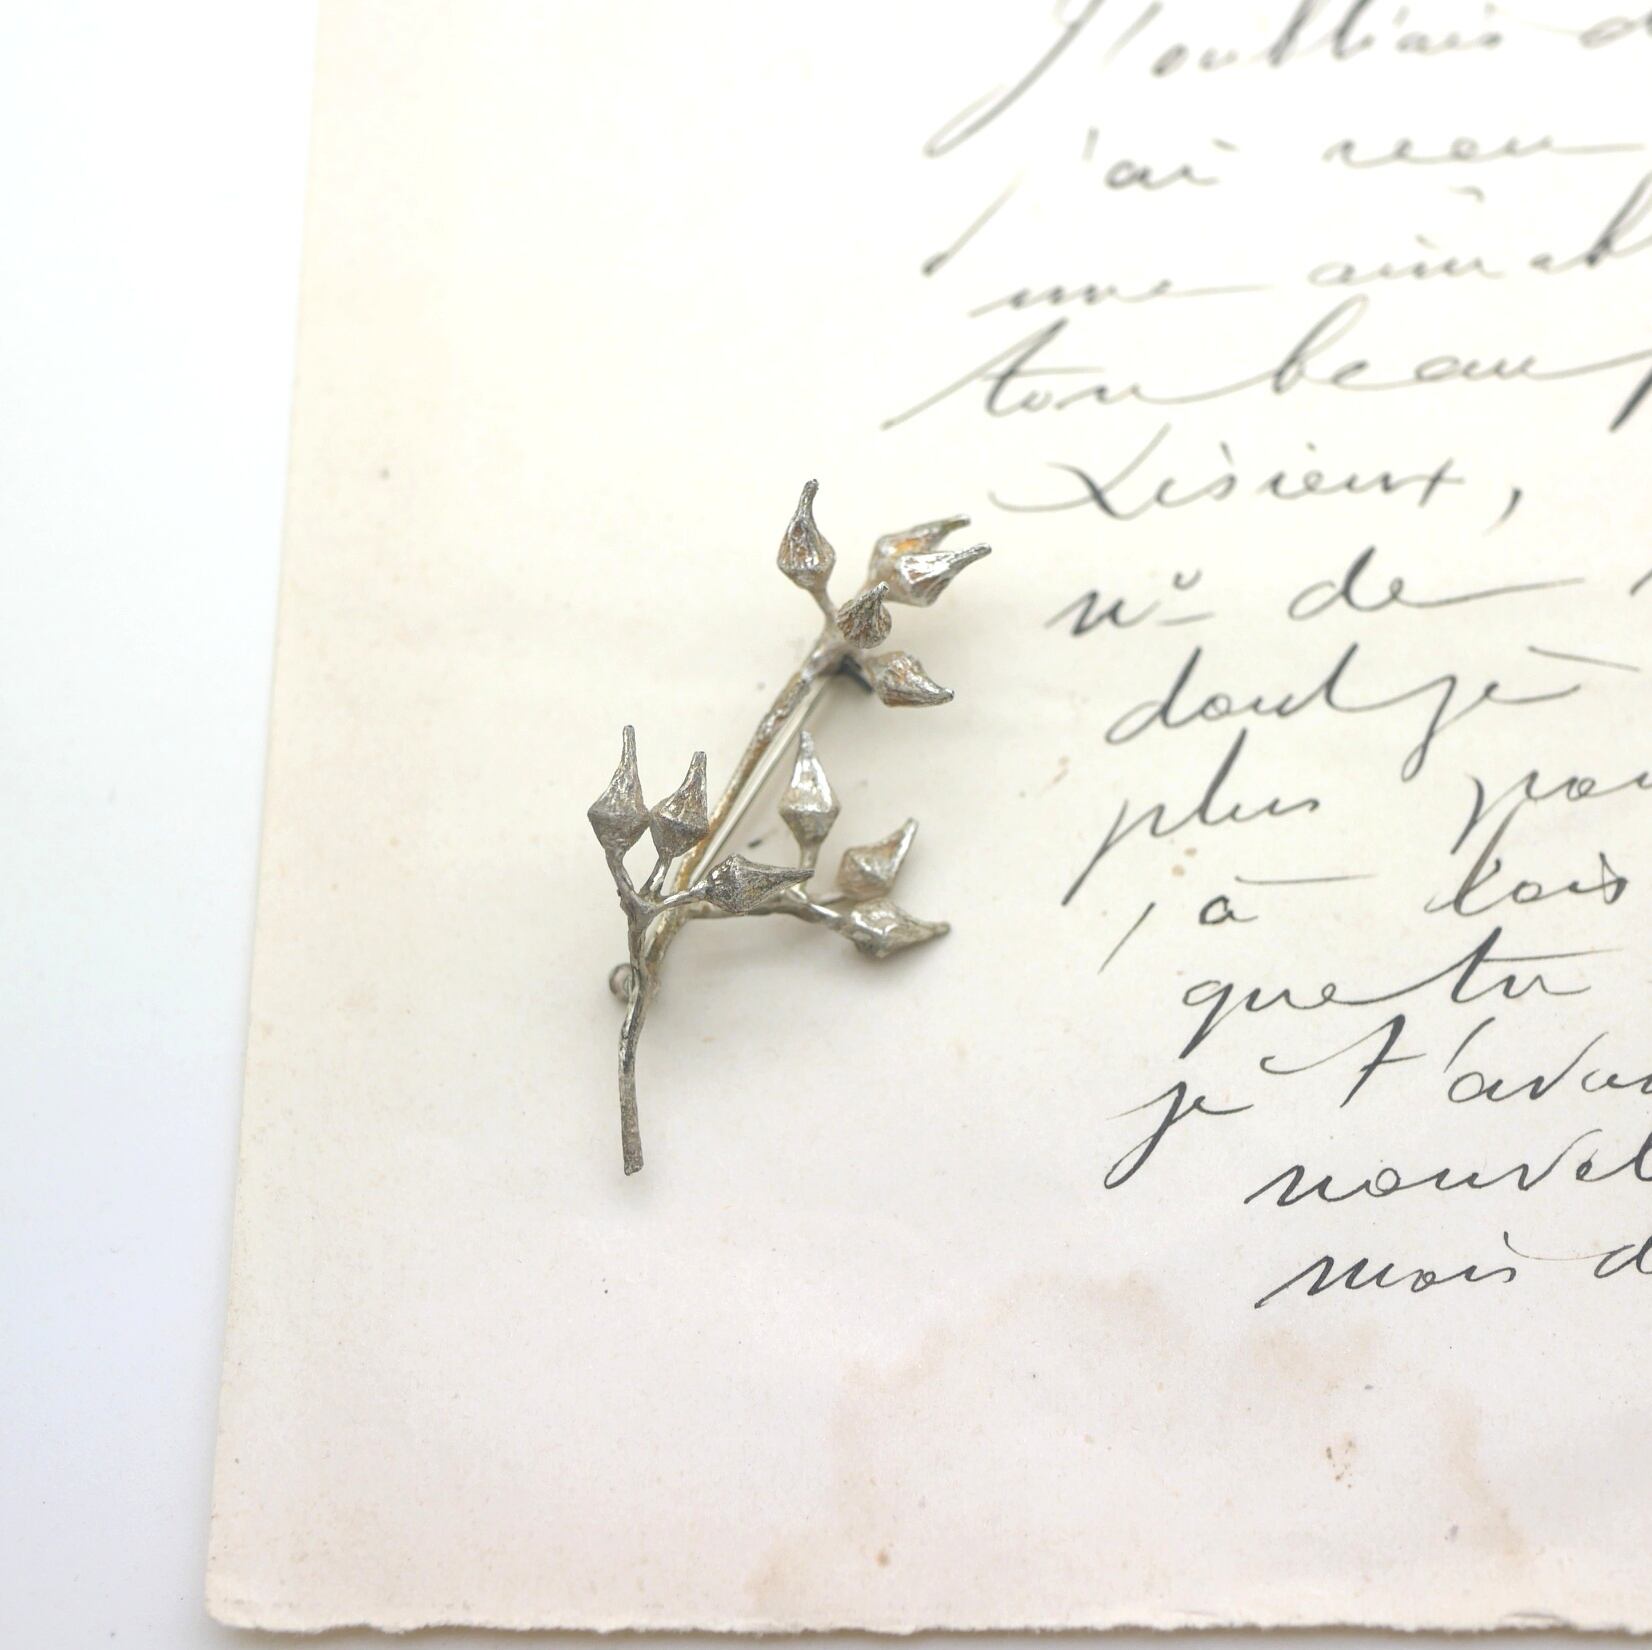 J'oubliais d
j'ai reçu
une aimabl
ton beau p
Lisieux,
nº de
dont je
plus pou
, à
que tu
je t'avai
nouvel
mois d